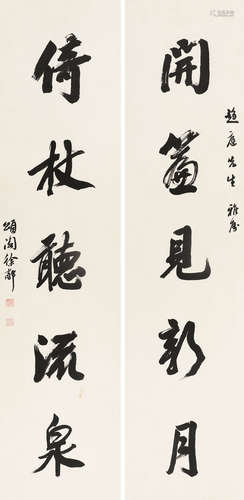 趨庭先生 雅屬
開簾見新月
倚杖聽流泉
頌閣徐郙